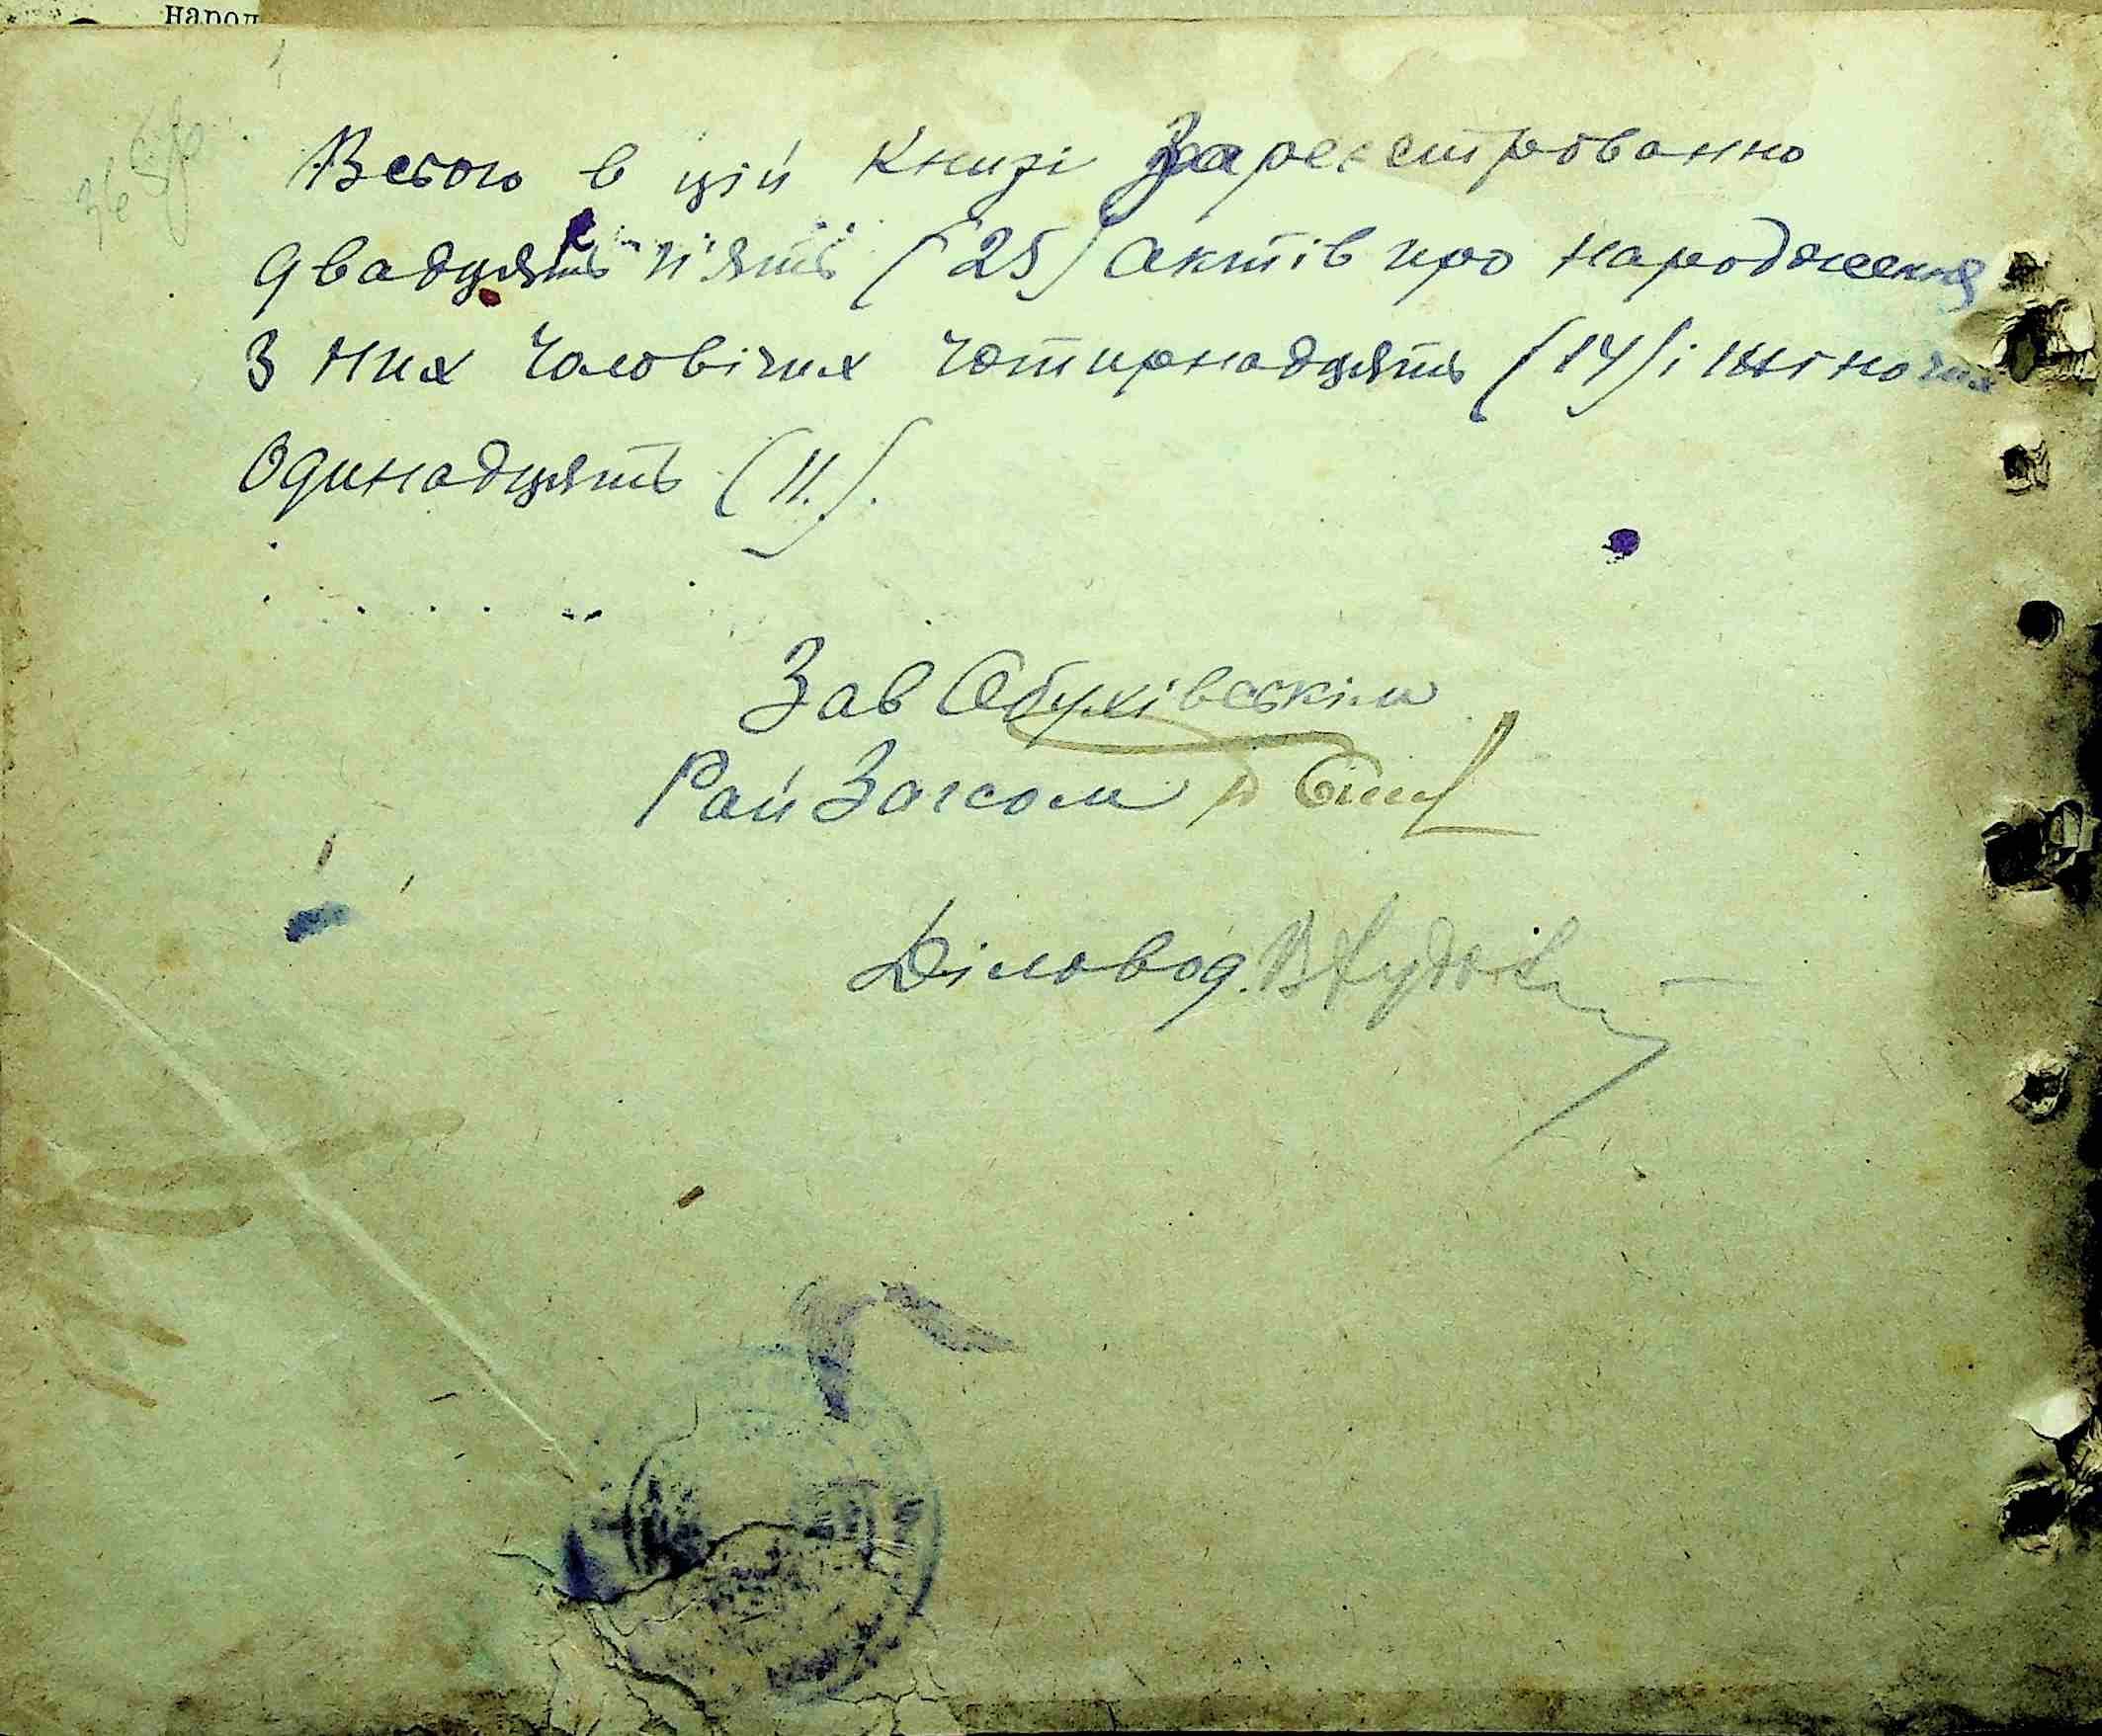 народ
Всього в цій Книзі Зареєстрованно
двадцять п'ять (25) актів про народження
З них чоловічих чотирнадцять (14) і жіночих
Одинадцять (11.).
Зав Обухівським
Рай Загсом
Діловод.